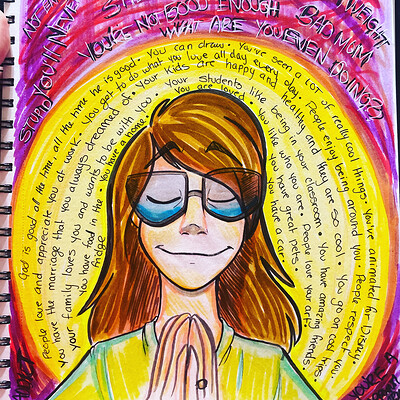 STUPID YOU'LL NEVER
YOU'RE NOT GOOD ENOUGH
BAD MOM
WEIGHT
WHAT ARE YOU EVEN DOING??
God is good all the time, all the time he is good. You can draw. You've seen a lot of really cool things. You've animated for Disney.
People love and appreciate you at work. You get to do what you love all day every day. People enjoy being around you. People respect you.
You have the marriage that you always dreamed of. Your kids are happy and healthy and they are so cool. You go on cool trips.
Your family loves you and wants to be with you. Your students like being in your classroom. You have amazing friends.
You have food in the fridge. You like who you are. People love your art.
You have a home. You are loved. You have great pets.
You have a car.